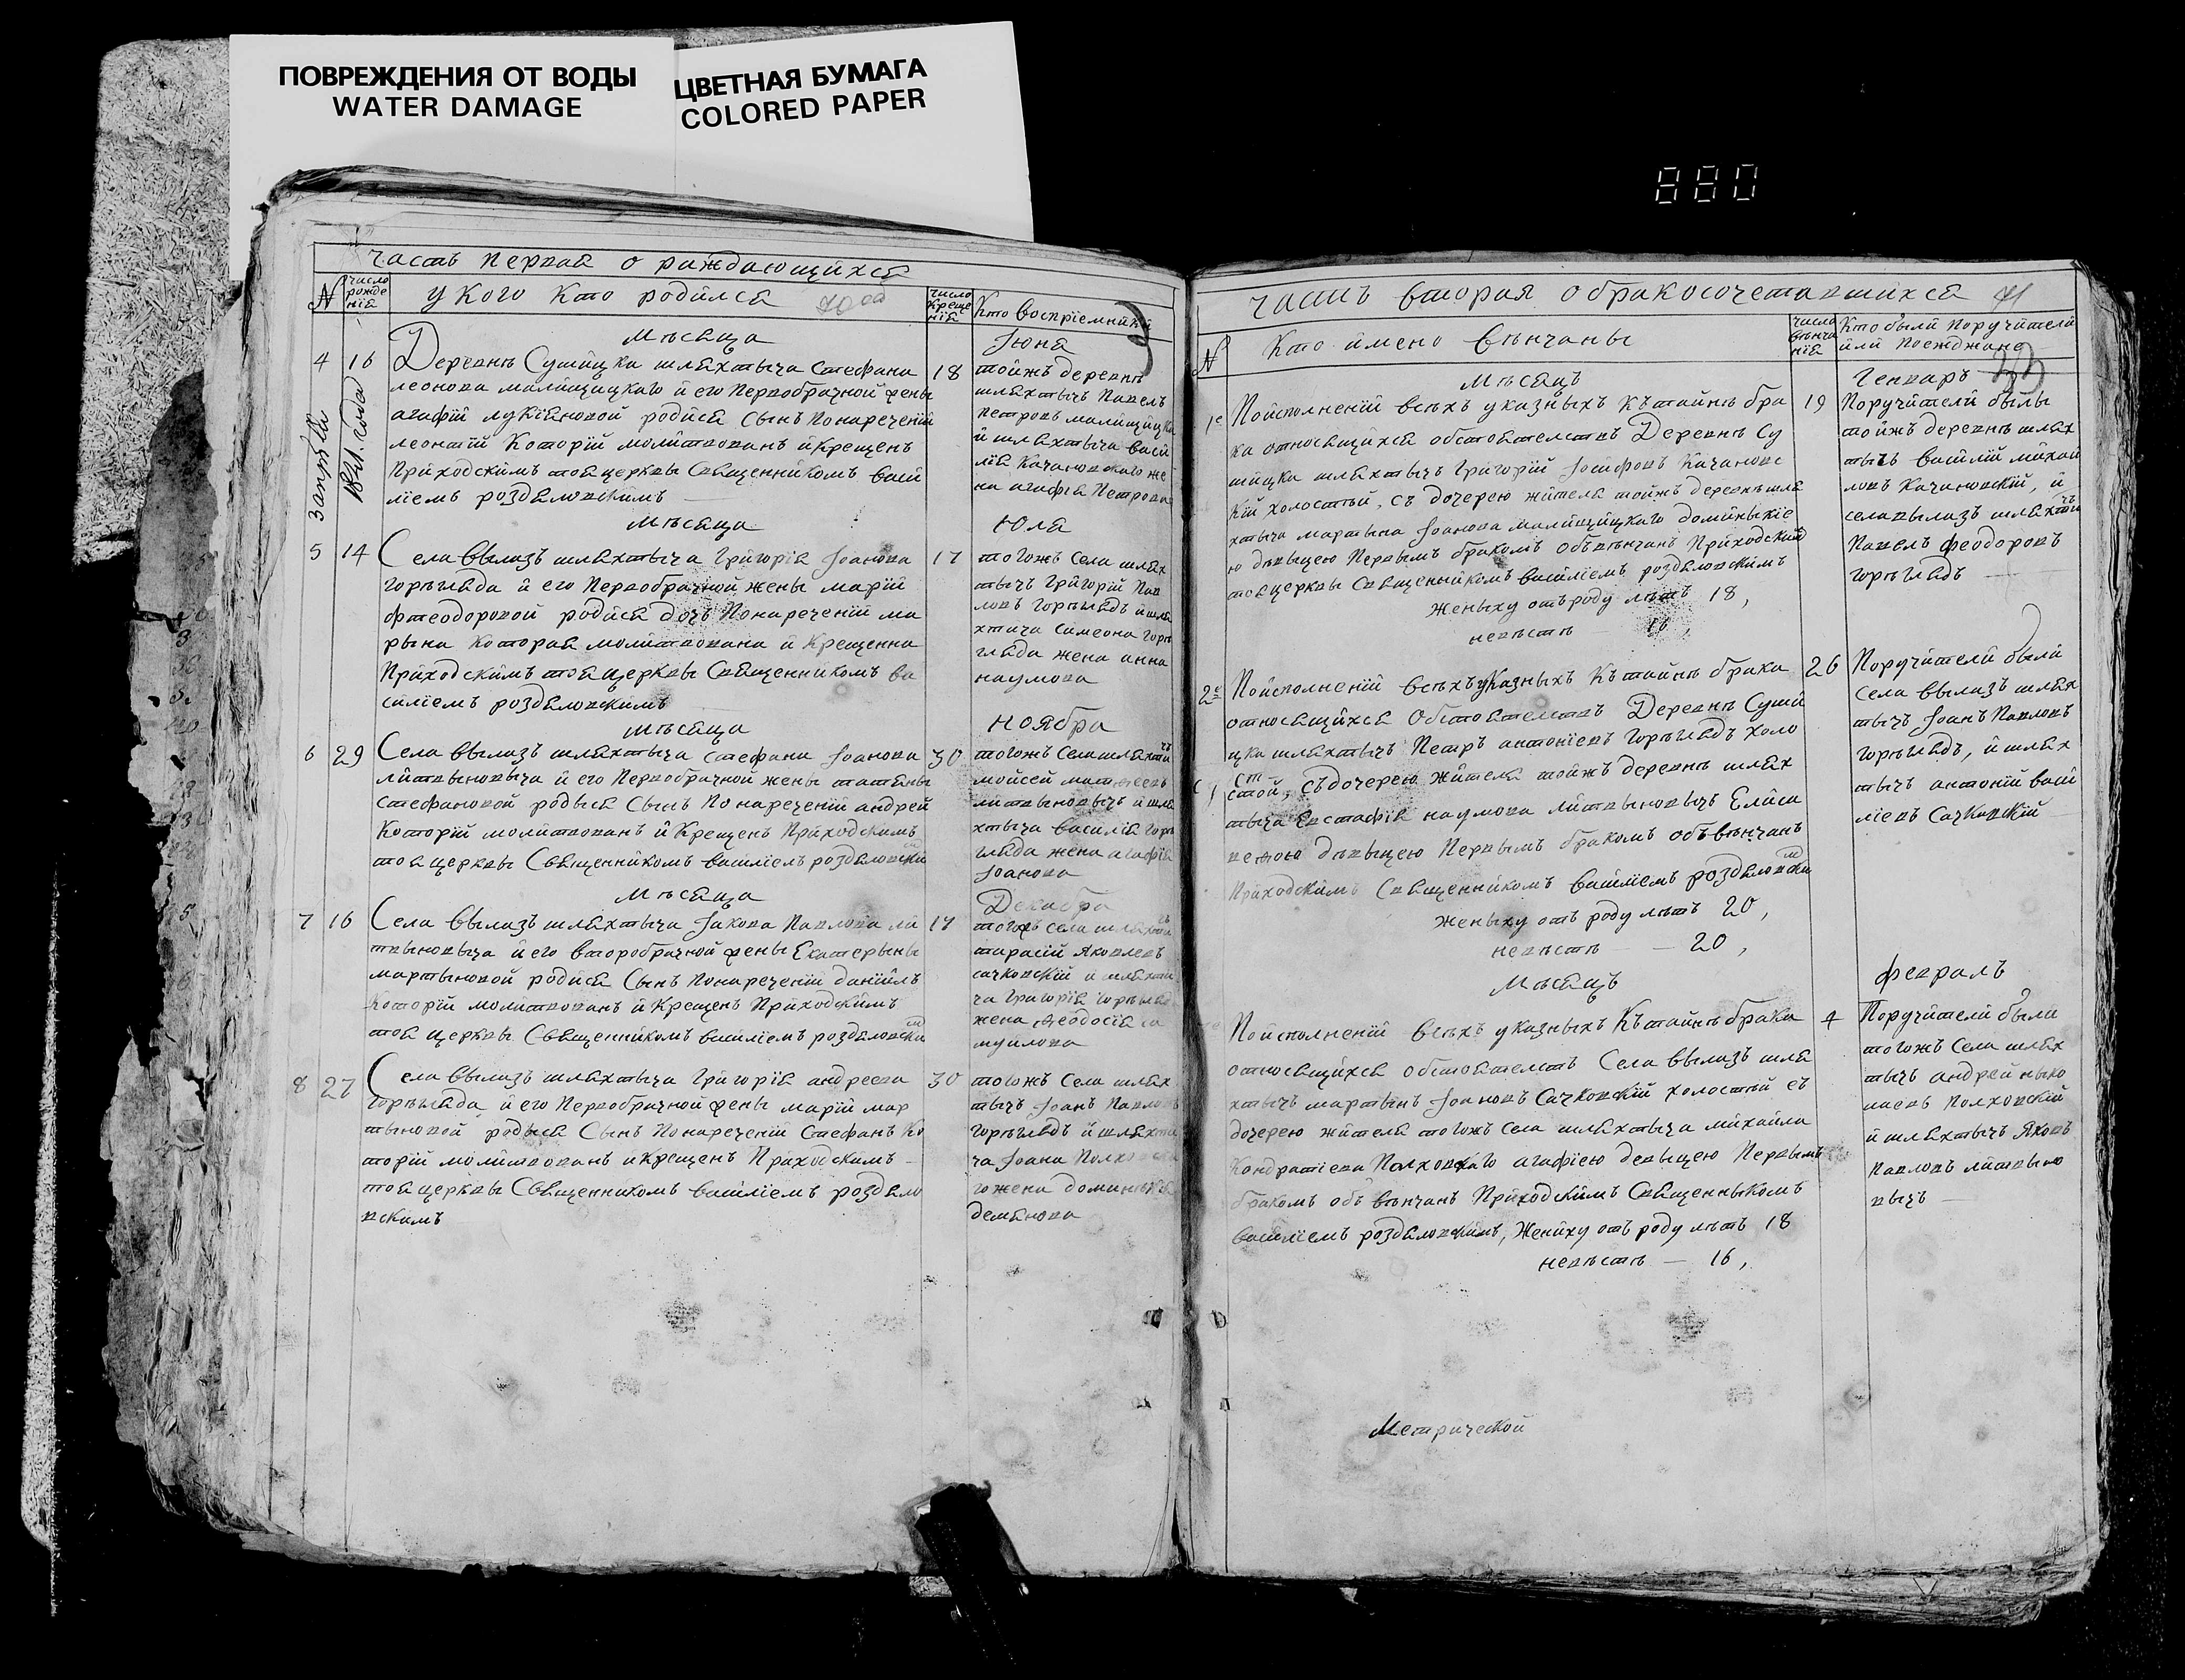 ПОВРЕЖДЕНИЯ ОТ ВОДЫ
WATER DAMAGE
ЦВЕТНАЯ БУМАГА
COLORED PAPER
880
часть первая о раждающихся
N
число рожде нія
у кого кто родился
число креще нія
кто воспріемники
Мѣсяца Іюня
4 16 Деревнѣ Сушицка шляхтыча Стефана 18
леонова малищицкаго и его первобрачной жены
агафіи лукіяновой родися сынъ понареченіи
леонтій которій молитвованъ и крещенъ
приходскимъ тоя церквы священникомъ васи
ліемъ роздяловскимъ
тойжъ деревнѣ
шляхтычъ павелъ
петровъ малищицкій
и шляхтыча васи
лія качановскаго же
на агафія петрова
1841. года
Мѣсяца Юля
5 14 Села Вылазъ шляхтыча григорія Іоанова 17
горѣгляда и его первобрачной жены маріи
фтеодоровой родися дочъ понареченіи ма
рына которая молитвована и крещенна
приходскимъ тоя церквы священникомъ ва
силіемъ роздяловскимъ
тогожъ села шлях
тычъ григорій пав
ловъ горѣглядъ и шля
хтича симеона горѣ
гляда жена анна
наумова
Мѣсяца Ноября
6 29 Села Вылазъ шляхтыча стефана Іоанова 30
литвыновыча и его первобрачной жены татяны
стефановой родыся сынъ понареченіи андрей
которій молитвованъ и крещенъ приходскимъ
тоя церквы священникомъ василіемъ роздяловски
тогожъ села шляхти
мойсей
литвыновычъ и шля
хтыча василія горѣ
гляда жена агафія
Іоанова
Мѣсяца Декабря
7 16 Села Вылазъ шляхтыча Іакова павлова ли 17
твыновыча и его второбрачной жены Екатерыны
мартыновой родися сынъ понареченіи даніилъ
которій молитвованъ и крещенъ приходскимъ
тоя церквы священникомъ василіемъ роздяловски
тогожъ села
тарасій яковлевъ
сачковскій и шляхти
ча григорія горѣгляда
жена феодосія са
муилова
8 27 Села Вылазъ шляхтыча григорія андреева 30
горѣгляда и его первобрачной жены маріи мар
тыновой родыся сынъ понареченіи стефанъ ко
торій молитвованъ и крещенъ приходскимъ
тоя церквы священникомъ василіемъ роздяло
вскимъ
тогожъ села шлях
тычъ Іоанъ павловъ
горѣглядъ и шляхти
ча Іоана
го жена
демянова
часть вторая о бракосочетавшихся
N
кто имено вѣнчаны
число вѣнча нія
кто были поручители
или поезджане
Мѣсяцъ Генваръ
1е Поисполненіи всѣхъ указныхъ къ тайнѣ бра 19
ка относящихся обстоятелствъ Деревнѣ Су
шицка шляхтычъ григорій Іосифовъ качановс
кій холостый, съ дочерею жителя тойжъ деревнѣ шля
хтыча мартына Іоанова малищицкаго доминыкіе
ю дѣвыцею первымъ бракомъ обвѣнчанъ приходским
тоя церквы священникомъ василіемъ роздяловскимъ
женыху отъ роду лѣтъ 18,
невѣстѣ 16,
Поручители былы
тойжъ деревнѣ шлях
тычъ василій михаи
ловъ качановскій, и
села вылазъ шляхти
павелъ феодоровъ
горѣглядъ
2е Поисполненіи всѣхъ указныхъ къ тайнѣ брака 26
относящихся обстоятелствъ Деревнѣ Суши
цка шляхтычъ петръ антоніевъ горѣглядъ холо
стой, съ дочерею жителя тойжъ деревнѣ шлях
тыча Евстафія наумова литвыновычъ Елиса
ветою дѣвыцею первымъ бракомъ объвѣнчанъ
приходскимъ священникомъ василіемъ роздяловски
женыху отъ роду лѣтъ 20,
невѣстѣ — 20,
Поручители были
села вылазъ шлях
тычъ Іоанъ павловъ
горѣглядъ, и шлях
тычъ антоній васи
ліевъ сачковскій
Мѣсяцъ февралъ
Поисполненіи всѣхъ указныхъ къ тайнѣ брака 4
относящихся обстоятелстъ Села вылазъ шля
хтычъ мартынъ Іоановъ сачковскій холостый съ
дочерею жителя тогожъ села шляхтыча михайла
кондратіева полховскаго агафіею девыцею первымъ
бракомъ объ вѣнчанъ приходскимъ священныкомъ
василіемъ роздяловскимъ, жениху отъ роду лѣтъ 18
невѣстѣ — 16,
Поручители были
тогожъ села шлях
тычъ андрей ныко
лаевъ полховскій
и шляхтычъ яковъ
павловъ литвыно
вычъ
Метрической